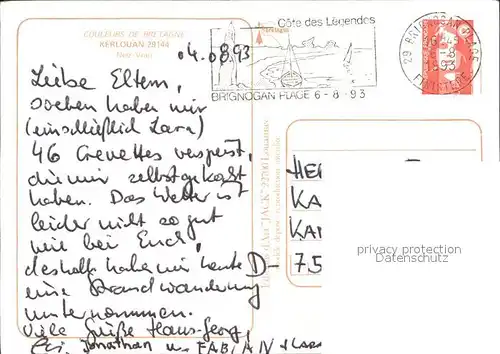 COULEURS DE BRETAGNE
KERLOUAN 29144
04.08.93
Liebe Eltern,
soeben haben wir
(einschließlich Lara)
46 Crevettes verspeist,
die wir selbst gekocht
haben. Das Wetter ist
leider nicht so gut
wie bei Euch,
deshalb haben wir heute
eine Strandwanderung
unternommen.
Viele Grüße Hans-Georg,
Jonathan u. FABIAN + Lara
Côte des Légendes
BRIGNOGAN PLAGE 6-8-93
29 BRIGNOGAN PLAGE
1993
FINISTERE
"JACK"
HE
KA
KA
D-75
privacy protection
Datenschutz